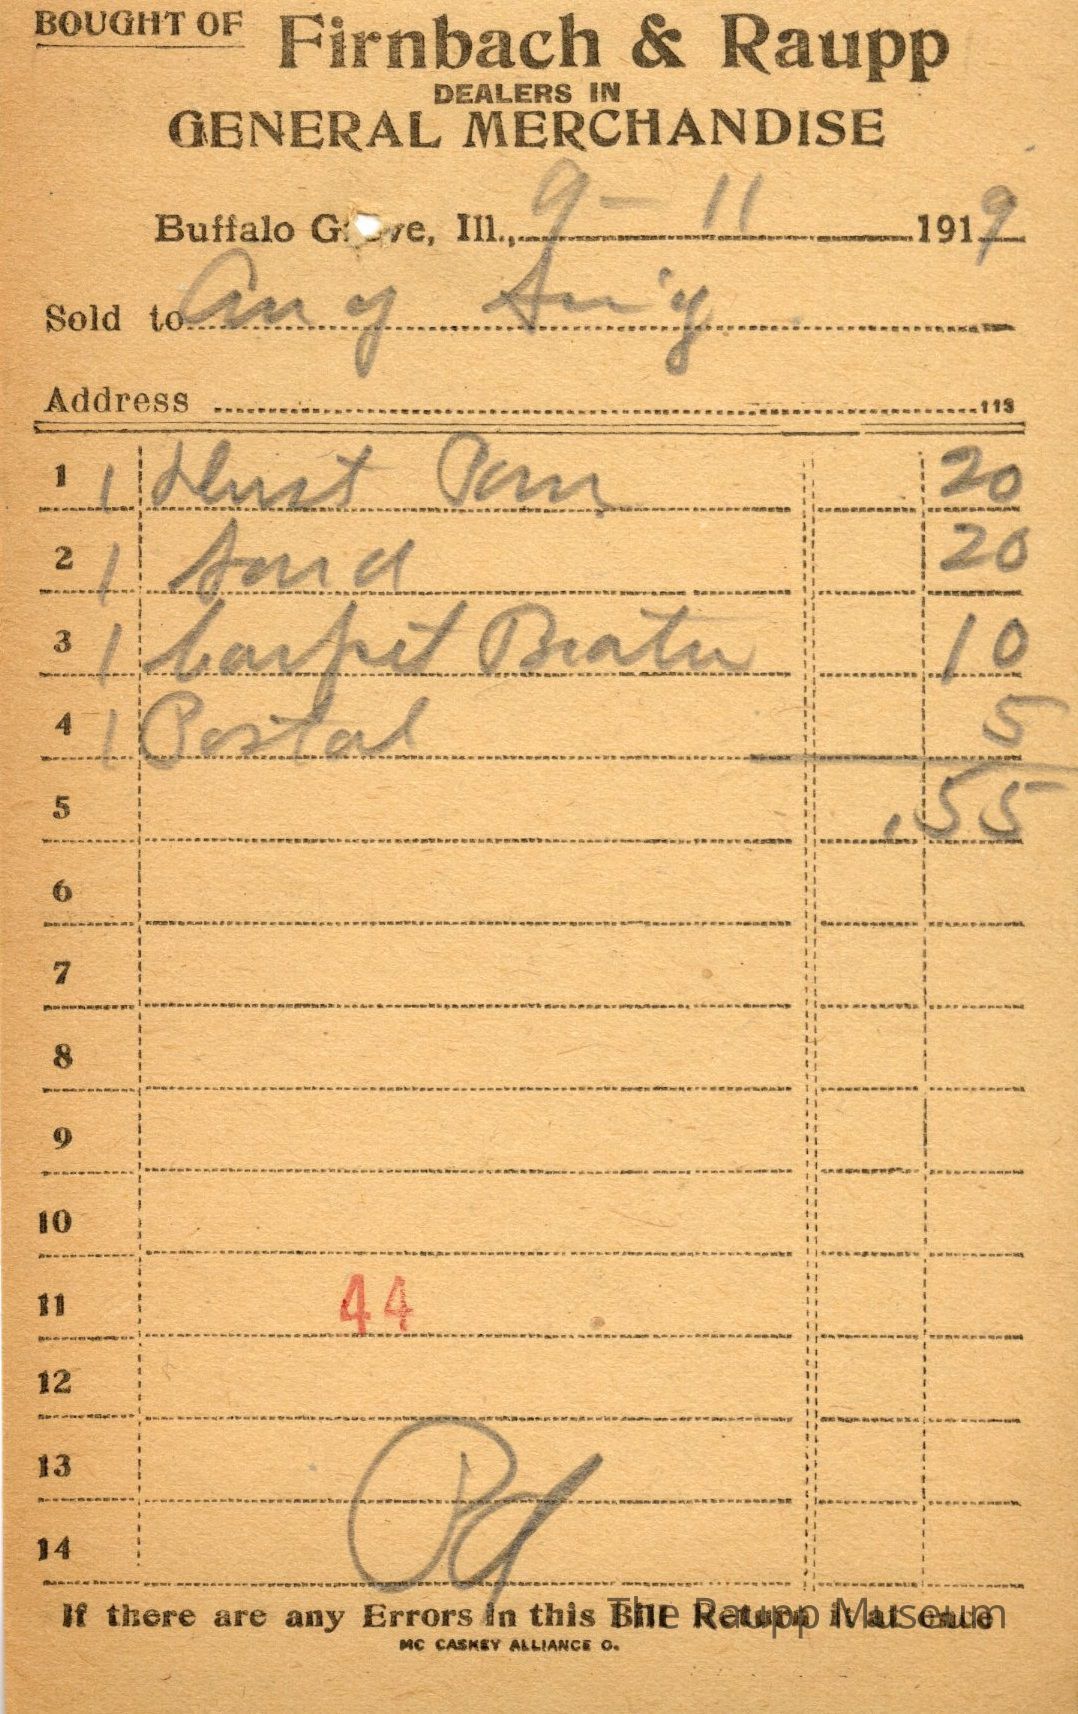 BOUGHT OF Firnbach & Raupp
DEALERS IN
GENERAL MERCHANDISE
Buffalo Grove, Ill., 9 - 11 1919
Sold to
Address 113
1 1 Dust Pan 20
2 1 20
3 1 Carpet Beater 10
4 1 Postal 5
5 .55
6
7
8
9
10
11 44
12
13
14
Pd
If there are any Errors in this Bill Return it at once
The Raupp Museum
MC CASKEY ALLIANCE O.